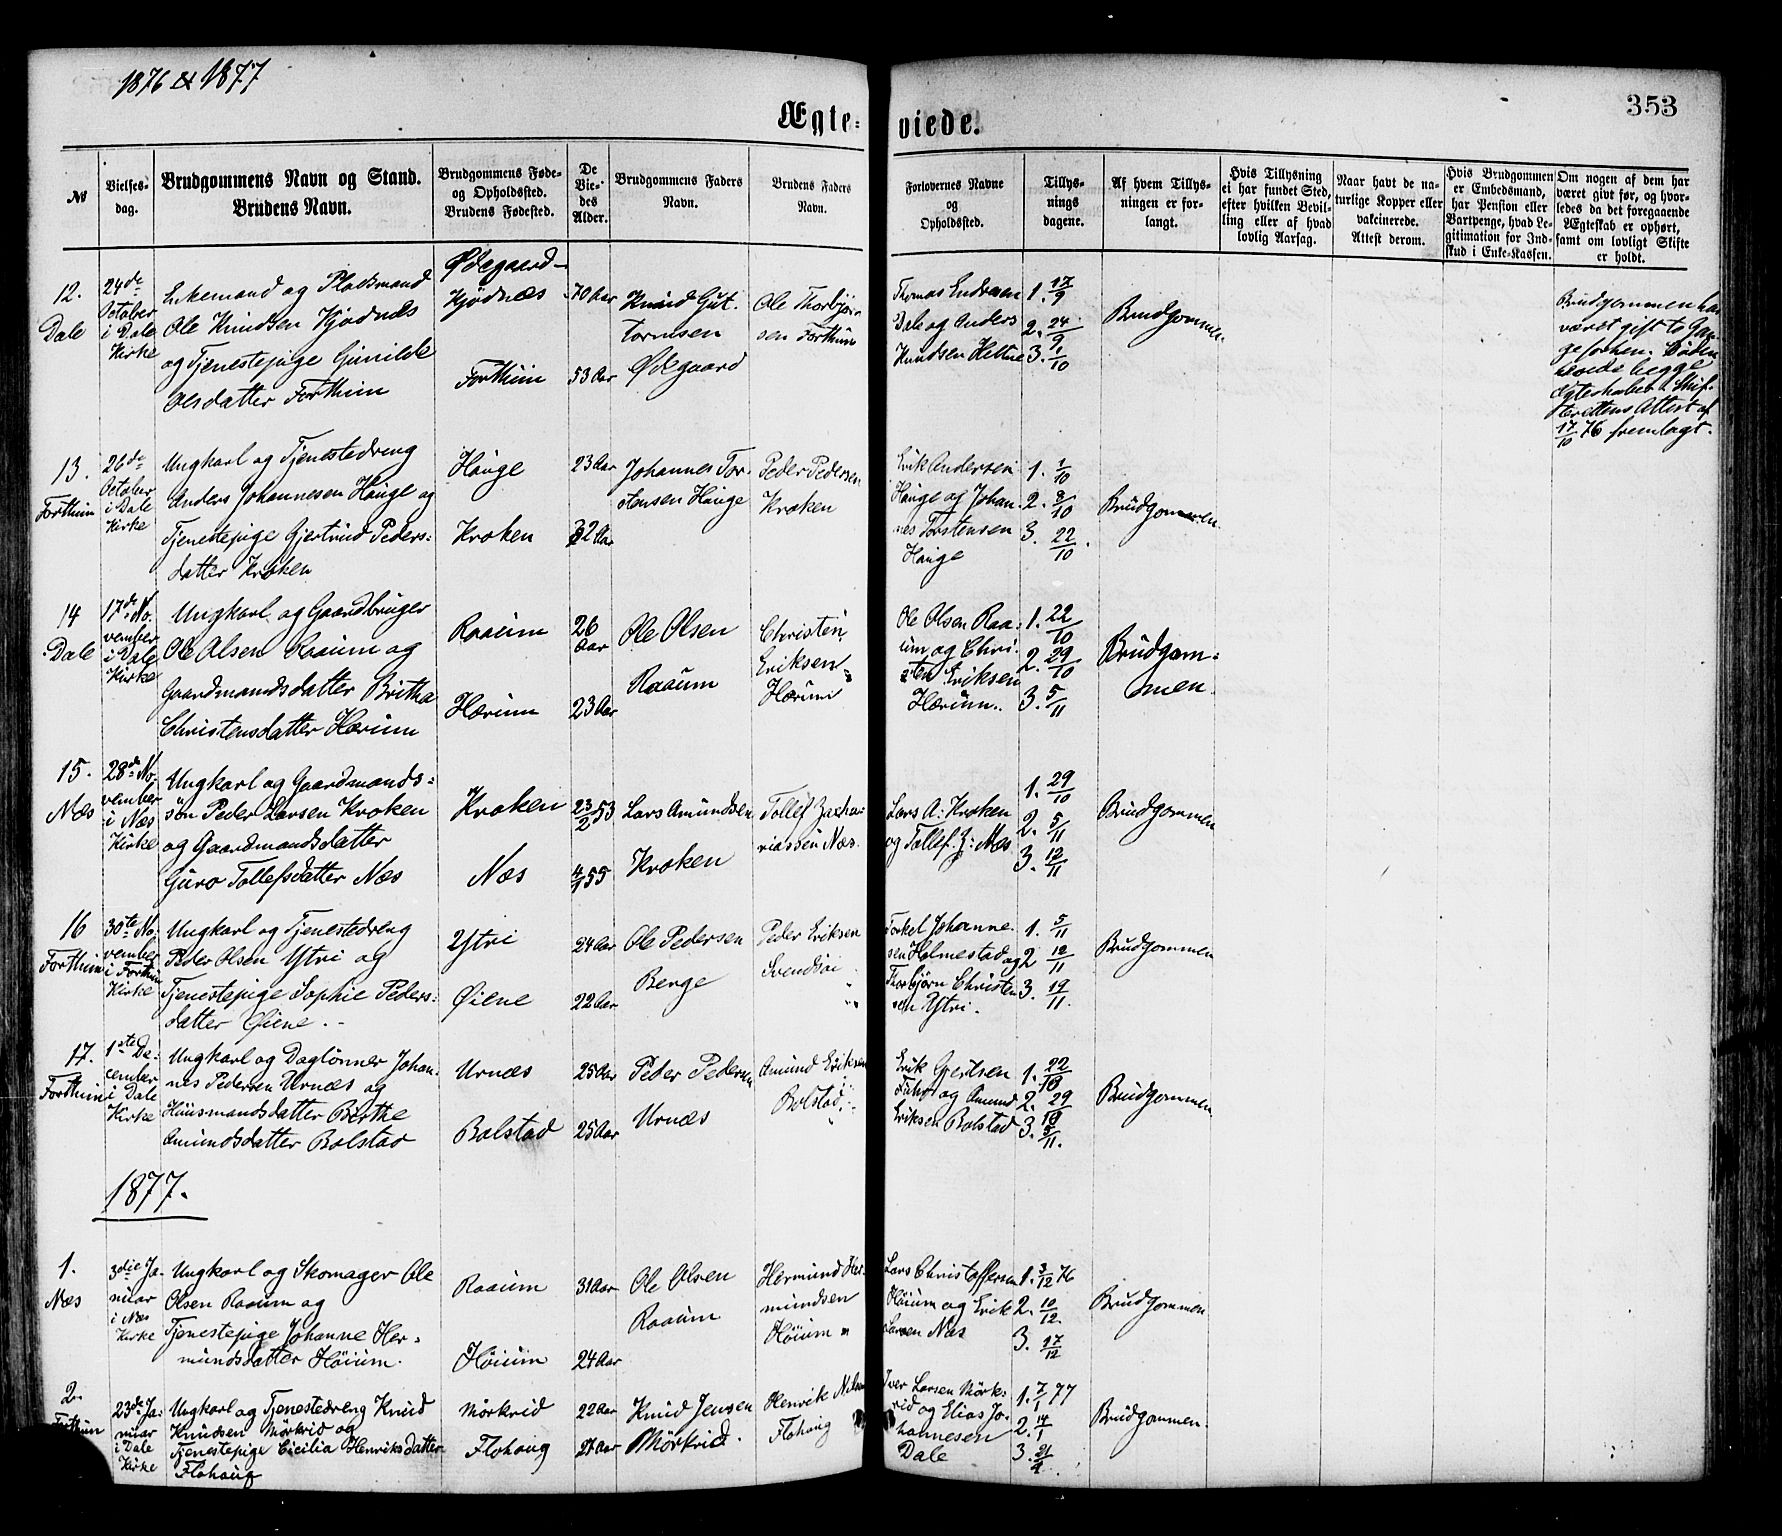 1876 & 1877
Ægte-
viede.
353
№
Vielses-
dag.
Brudgommens Navn og Stand.
Brudens Navn.
Brudgommens Føde-
og Opholdssted.
Brudens Fødested.
De
Vie-
des
Alder.
Brudgommens Faders
Navn.
Brudens Faders
Navn.
Forlovernes Navne
og
Opholdssted.
Tillys-
nings
dagene.
Af hvem Tillys-
ningen er for-
langt.
Hvis Tillysning
ei har fundet Sted,
efter hvilken Bevil-
ling eller af hvad
lovlig Aarsag.
Naar havt de na-
turlige Kopper eller
vakcinerede.
Attest derom.
Hvis Brudgommen
er Embedsmand,
har Pension eller
Vartpenge, hvad Le-
gitimation for Ind-
skud i Enke-Kassen.
Om nogen af dem har
været givt før, og hvor-
ledes da det foregaaende
Ægteskab er ophørt,
samt om lovligt Skifte
er holdt.
12.
Dale
24de
October
i Dale
Kirke
Enkemand og Pladsmand
Ole Knudsen Kjødnæs
og Tjenestepige Gunilde
Olsdatter Forthun
Ødegaard-
Kjødnæs
Forthun
70 Aar
53 Aar
Knud Gut-
tormsen
Ødegaard
Ole Thorbjør-
sen Forthun
Thomas Endresen
Dale og Anders
Knudsen Heltne
1. 17/9
2. 24/9
3. 1/10
Brudgommen.
Brudgommen har
været gift to Gan-
ge forhen. Døden
hævede begge
Ægteskaber. Skif-
terettens Attest af
17/10 76 fremlagt.
13.
Forthun
26de
October
i Dale
Kirke
Ungkarl og Tjenestedreng
Anders Johannesen Hauge og
Tjenestepige Gjertrud Peders-
datter Kroken
Hauge
Kroken
23 Aar
32 Aar
Johannes Tor-
stensen Hauge
Peder Pedersen
Kroken
Erik Andersen
Hauge og Johan-
nes Torstensen
Hauge
1. 1/10
2. 8/10
3. 22/10.
Brudgommen.
14
Dale
17de No-
vember
i Dale
Kirke
Ungkarl og Gaardbruger
Ole Olsen Raaum og
Gaardmandsdatter Britha
Christensdatter Hærum
Raaum
Hærum
26
Aar
23 Aar
Ole Olsen
Raaum
Christen
Eriksen
Hærum
Ole Olsen Raa-
um og Chri-
sten Eriksen
Hærum.
1. 22/10
2. 29/10
3. 5/11
Brudgom-
men.
15.
Næs
28de No-
vember
i Næs
Kirke
Ungkarl og Gaardmands-
søn Peder Larsen Kroken
og Gaardmandsdatter
Guro Tollefsdatter Næs
Kroken
Næs
23/2 53
4/1 55
Lars Amundsen
Kroken
Tollef Zacha-
riassen Næs.
Lars A: Kroken
og Tollef. Z: Næs
1. 29/10
2. 5/11
3. 12/11
Brudgommen
16
Forthun
30te No-
vember
i Forthun
Kirke
Ungkarl og Tjenestedreng
Peder Olsen Ystri og
Tjenestepige Sophie Peders-
datter Øiene.
Ystri
Øiene
24 Aar
22 Aar
Ole Pedersen
Berge
Peder Eriksen
Svendsøi
Torkel Johanne-
sen Holmestad og
Thorbjørn Christen
sen Ystri.
1. 5/11
2 12/11
3. 19/11.
Brudgommen
17.
Forthun
1ste De-
cember
i Dale
Kirke
Ungkarl og Daglønner Johan-
nes Pedersen Urnæs og
Huusmandsdatter Berthe
Amundsdatter Bolstad
Urnæs
Bolstad
25 Aar
25 Aar
Peder Pedersen
Urnæs
Amund Eriksen
Bolstad
Erik Gjertsen
Fuhr og Amund
Eriksen Bolstad
1. 22/10
2. 29/10
3. 5/11.
Brudgommen
1877.
1.
Næs
3die Ja-
nuar
i Næs
Kirke
Ungkarl og Skomager Ole
Olsen Raaum og
Tjenestepige Johanne Her-
mundsdatter Høium.
Raaum
Høium
31 Aar
24 Aar
Ole Olsen
Raaum
Hermund Her-
mundsen
Høium
Lars Christoffersen
Høium og Erik
Larsen Næs
1. 3/12 76
2. 10/12.
3. 17/12
Brudgommen.
2.
Forthun
23de Ja-
nuar
i Dale
Kirke
Ungkarl og Tjenestedreng Knud
Knudsen Mørkrid og
Tjenestepige Cicilia Henriksdatter
Flohaug
Mørkrid
Flohaug
22 Aar
27 Aar
Knud Jensen
Mørkrid.
Henrik Nilsen
Flohaug
Iver Larsen Mørk-
rid og Elias Jo-
hannesen
Dale
1. 7/1 77
2. 14/1
3. 21/1
Brudgommen.